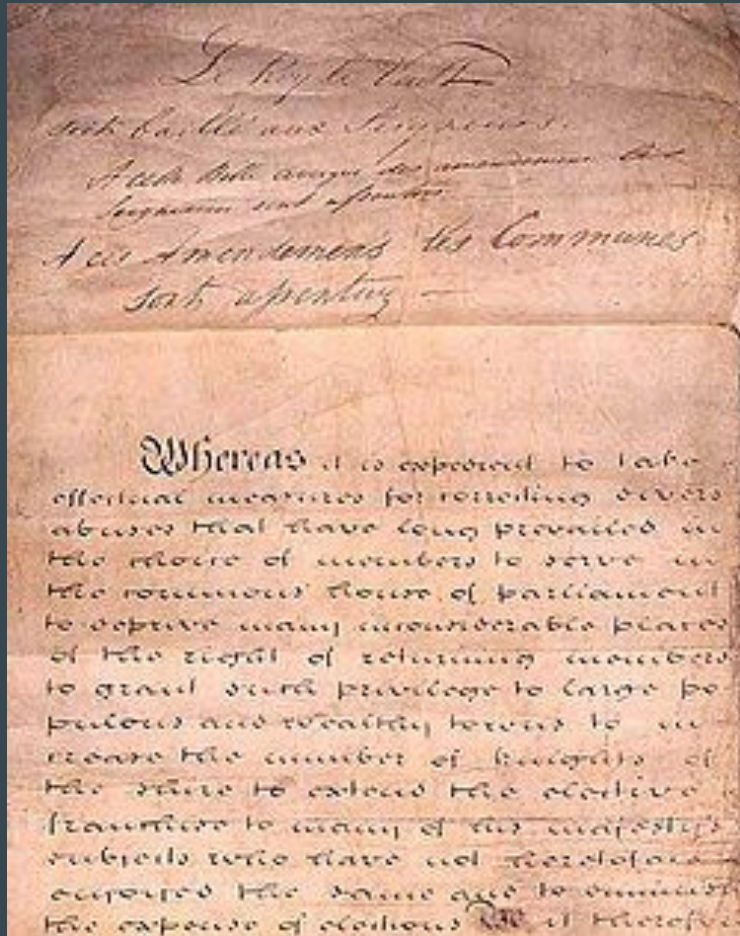 Le Roy le Veult
soit baillé aux Seigneurs.
A cette Bille avecque des amendemens les
Seigneurs sont assentus
A ces Amendemens les Communes
sont assentus
Whereas it is expedient to take
effectual measures for correcting divers
abuses that have long prevailed in
the choice of members to serve in
the commons house of parliament
to deprive many inconsiderable places
of the right of returning members
to grant such privilege to large po
pulous and wealthy towns to in
crease the number of knights of
the shire to extend the elective
franchise to many of his majesty's
subjects who have not heretofore
enjoyed the same and to diminish
the expense of elections Be it therefore